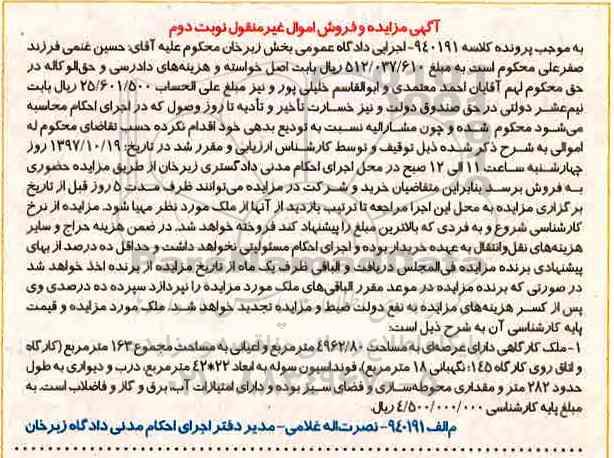 آگهی مزایده و فروش اموال غیر منقول نوبت دوم
به موجب پرونده کلاسه ۹۴۰۱۹۱- اجرایی دادگاه عمومی بخش زبرخان محکوم علیه آقای: حسین غنمی فرزند
صفرعلی محکوم است به مبلغ ۵۱۲/۰۳۷/۶۱۰ ریال بابت اصل خواسته و هزینه‌های دادرسی و حق‌الوکاله در
حق محکوم لهم آقایان احمد معتمدی و ابوالقاسم خلیلی پور و نیز مبلغ علی الحساب ۲۵/۶۰۱/۵۰۰ ریال بابت
نیم‌عشر دولتی در حق صندوق دولت و نیز خسارت تأخیر و تأدیه تا روز وصول که در اجرای احکام محاسبه
می‌شود محکوم شده و چون مشارالیه نسبت به تودیع بدهی خود اقدام نکرده حسب تقاضای محکوم له
اموالی به شرح ذکر شده ذیل توقیف و توسط کارشناس ارزیابی و مقرر شد در تاریخ: ۱۳۹۷/۱۰/۱۹ روز
چهارشنبه ساعت ۱۱ الی ۱۲ صبح در محل اجرای احکام مدنی دادگستری زبرخان از طریق مزایده حضوری
به فروش برسد بنابراین متقاضیان خرید و شرکت در مزایده می‌توانند ظرف مدت ۵ روز قبل از تاریخ
برگزاری مزایده به محل این اجرا مراجعه تا ترتیب بازدید از آنها از ملک مورد نظر مهیا شود. مزایده از نرخ
کارشناسی شروع و به فردی که بالاترین مبلغ را پیشنهاد کند فروخته خواهد شد. در ضمن هزینه حراج و سایر
هزینه‌های نقل‌وانتقال به عهده خریدار بوده و اجرای احکام مسئولیتی نخواهد داشت و حداقل ده درصد از بهای
پیشنهادی برنده مزایده فی‌المجلس دریافت و الباقی ظرف یک ماه از تاریخ مزایده از برنده اخذ خواهد شد
در صورتی که برنده مزایده در موعد مقرر الباقی‌های ملک مورد مزایده را نپردازد سپرده ده درصدی وی
پس از کسر هزینه‌های مزایده به نفع دولت ضبط و مزایده تجدید خواهد شد. ملک مورد مزایده و قیمت
پایه کارشناسی آن به شرح ذیل است:
۱- ملک کارگاهی دارای عرصه‌ای به مساحت ۴۹۶۲/۸۰ مترمربع و اعیانی به مساحت مجموع ۱۶۳ مترمربع (کارگاه
و اتاق روی کارگاه ۱۴۵؛ نگهبانی ۱۸ مترمربع)، فونداسیون سوله به ابعاد ۲۲*۴۲ مترمربع، درب و دیواری به طول
حدود ۲۸۲ متر و مقداری محوطه‌سازی و فضای سبز بوده و دارای امتیازات آب، برق و گاز و فاضلاب است. به
مبلغ پایه کارشناسی ۴/۵۰۰/۰۰۰/۰۰۰ ریال.
م‌الف ۹۴۰۱۹۱- نصرت‌اله غلامی- مدیر دفتر اجرای احکام مدنی دادگاه زبرخان